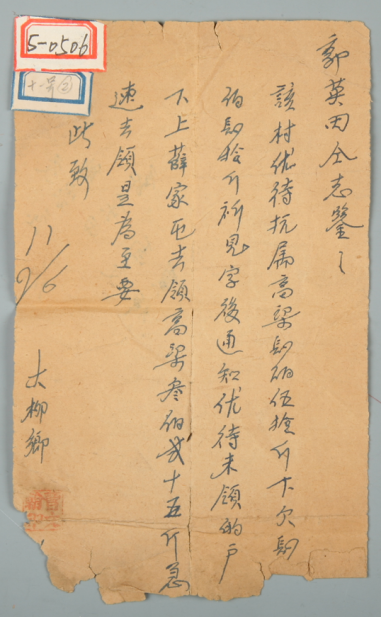 5-0506
郭英田仝志鑒
該村优待抗属高粱 佰伍拾斤下欠
佰 拾斤祈見字後通知优待未領的户
下上薛家屯去領高粱叁佰弍十五斤急
速去領是為至要
此致
11/6
大柳鄉